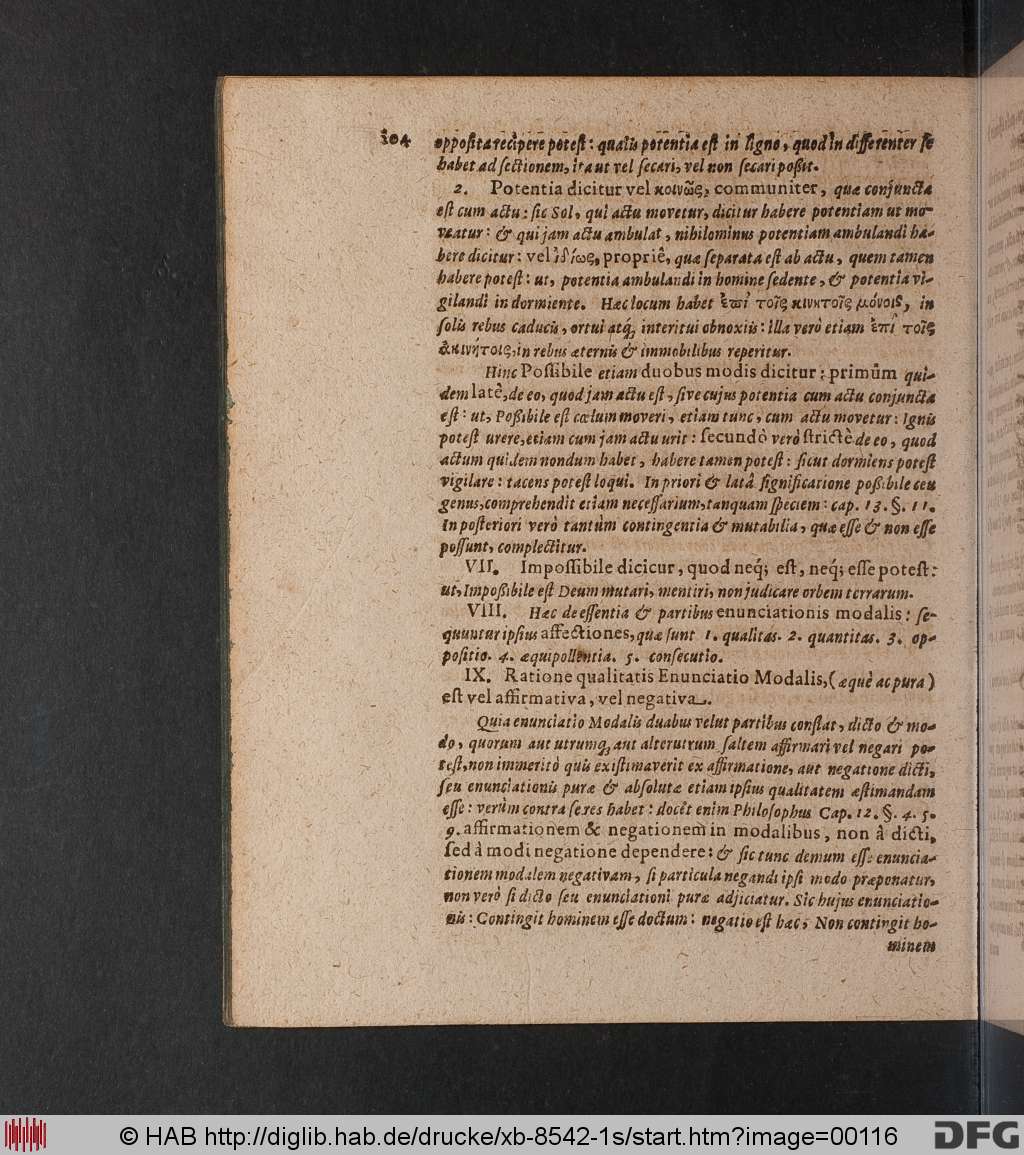 104 oppositarecipere potest: qualis potentia est in ligno, quod indifferenter se
habet ad sectionem, ita ut vel secari, vel non secari poßit.
2. Potentia dicitur vel κοινῶς, communiter, quæ conjuncta
est cum actu: sic Sol, qui actu movetur, dicitur habere potentiam ut mo-
veatur: & qui jam actu ambulat, nihilominus potentiam ambulandi ha-
bere dicitur: vel ἰδίως, propriê, quæ separata est ab actu, quem tamen
habere potest: ut, potentia ambulandi in homine sedente, & potentia vi-
gilandi in dormiente. Hæc locum habet ἐπὶ τοῖς κινητοῖς μόνοις, in
solis rebus caducis, ortui atq; interitui obnoxiis: illa verò etiam ἐπὶ τοῖς
ἀκινήτοις, in rebus æternis & immobilibus reperitur.
Hinc Possibile etiam duobus modis dicitur: primùm qui-
dem latè, de eo, quod jam actu est, sive cujus potentia cum actu conjuncta
est: ut, Poßibile est cœlum moveri, etiam tunc, cum actu movetur: Ignis
potest urere, etiam cum jam actu urit: secundò verò strictè de eo, quod
actum quidem nondum habet, habere tamen potest: sicut dormiens potest
vigilare: tacens potest loqui. In priori & latâ significatione poßibile ceu
genus, comprehendit etiam necessarium, tanquam speciem: cap. 13. §. 11.
In posteriori verò tantùm contingentia & mutabilia, quæ esse & non esse
possunt, complectitur.
VII. Impossibile dicicur, quod neq; est, neq; esse potest:
ut, Impoßibile est Deum mutari, mentiri, non judicare orbem terrarum.
VIII. Hæc de essentia & partibus enunciationis modalis: se-
quuntur ipsius affectiones, quæ sunt 1. qualitas. 2. quantitas. 3. op-
positio. 4. æquipollentia. 5. consecutio.
IX. Ratione qualitatis Enunciatio Modalis, (æquè ac pura)
est vel affirmativa, vel negativa.
Quia enunciatio Modalis duabus velut partibus constat, dicto & mo-
do, quorum aut utrumq; aut alterutrum saltem affirmari vel negari po-
test, non immeritò quis existimaverit ex affirmatione, aut negatione dicti,
seu enunciationis puræ & absolutæ etiam ipsius qualitatem æstimandam
esse: verùm contra se res habet: docet enim Philosophus Cap. 12. §. 4. 5.
9. affirmationem & negationem in modalibus, non â dicti,
sed â modi negatione dependere: & sic tunc demum esse enuncia-
tionem modalem negativam, si particula negandi ipsi modo præponatur,
non verò si dicto seu enunciationi puræ adjiciatur. Sic hujus enunciatio-
nis: Contingit hominem esse doctum: negatio est hæc, Non contingit ho-
minem
© HAB http://diglib.hab.de/drucke/xb-8542-1s/start.htm?image=00116
DFG